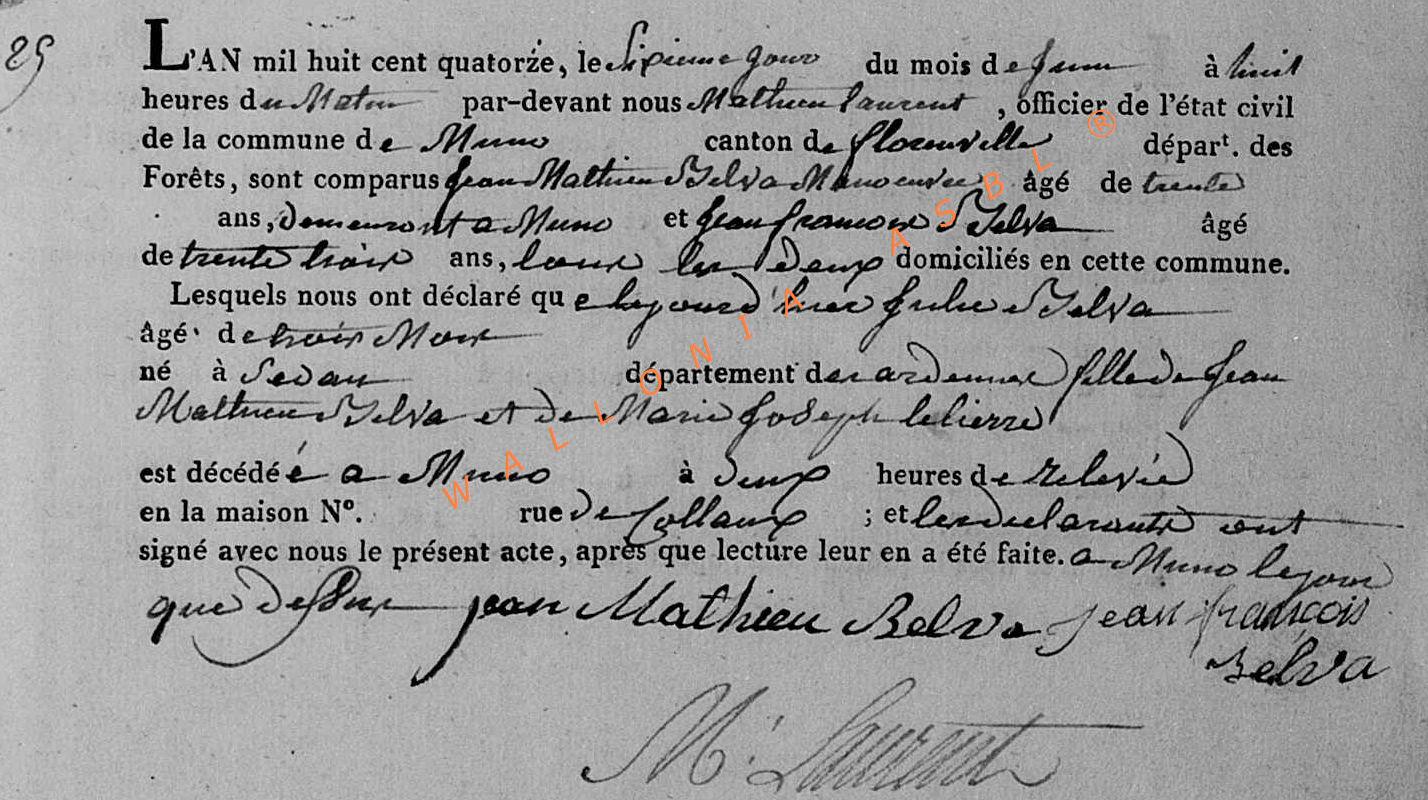 25
L'AN mil huit cent quatorze, le Sixieme jour du mois de Juin à huit
heures du Matin par-devant nous Mathieu Laurent, officier de l'état civil
de la commune de Muno canton de florenville départ. des
Forêts, sont comparus Jean Mathieu Belva Manoeuvre âgé de trente
ans, demeurant a Muno et Jean francois Belva âgé
de trente trois ans, tous les deux domiciliés en cette commune.
Lesquels nous ont déclaré que le jourd'hier Julie Belva
âgé de trois Mois
né à Sedan département des ardennes fille de Jean
Mathieu Belva et de Marie Joseph lelierre
est décédée a Muno à deux heures de relevée
en la maison N°. rue de Collaux ; et les declarants ont
signé avec nous le présent acte, après que lecture leur en a été faite. a Muno le jour
que dessus jean Mathieu Belva jean françois
Belva
M. Laurent
WALLONIA ASBL ®